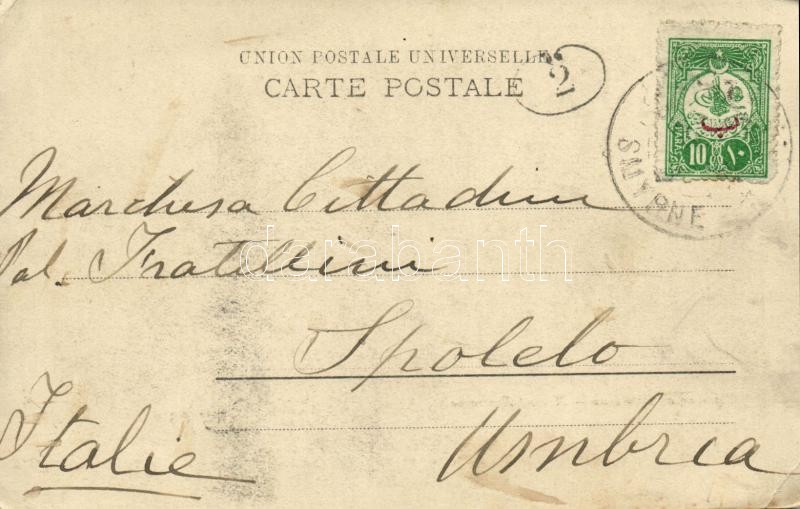 UNION POSTALE UNIVERSELLE
CARTE POSTALE
2
PARAS
10 ١٠
ب
SMYRNE
Marchesa Cittadini
Pal. Fratellini
darabanth
Spoleto
Italie
Umbria